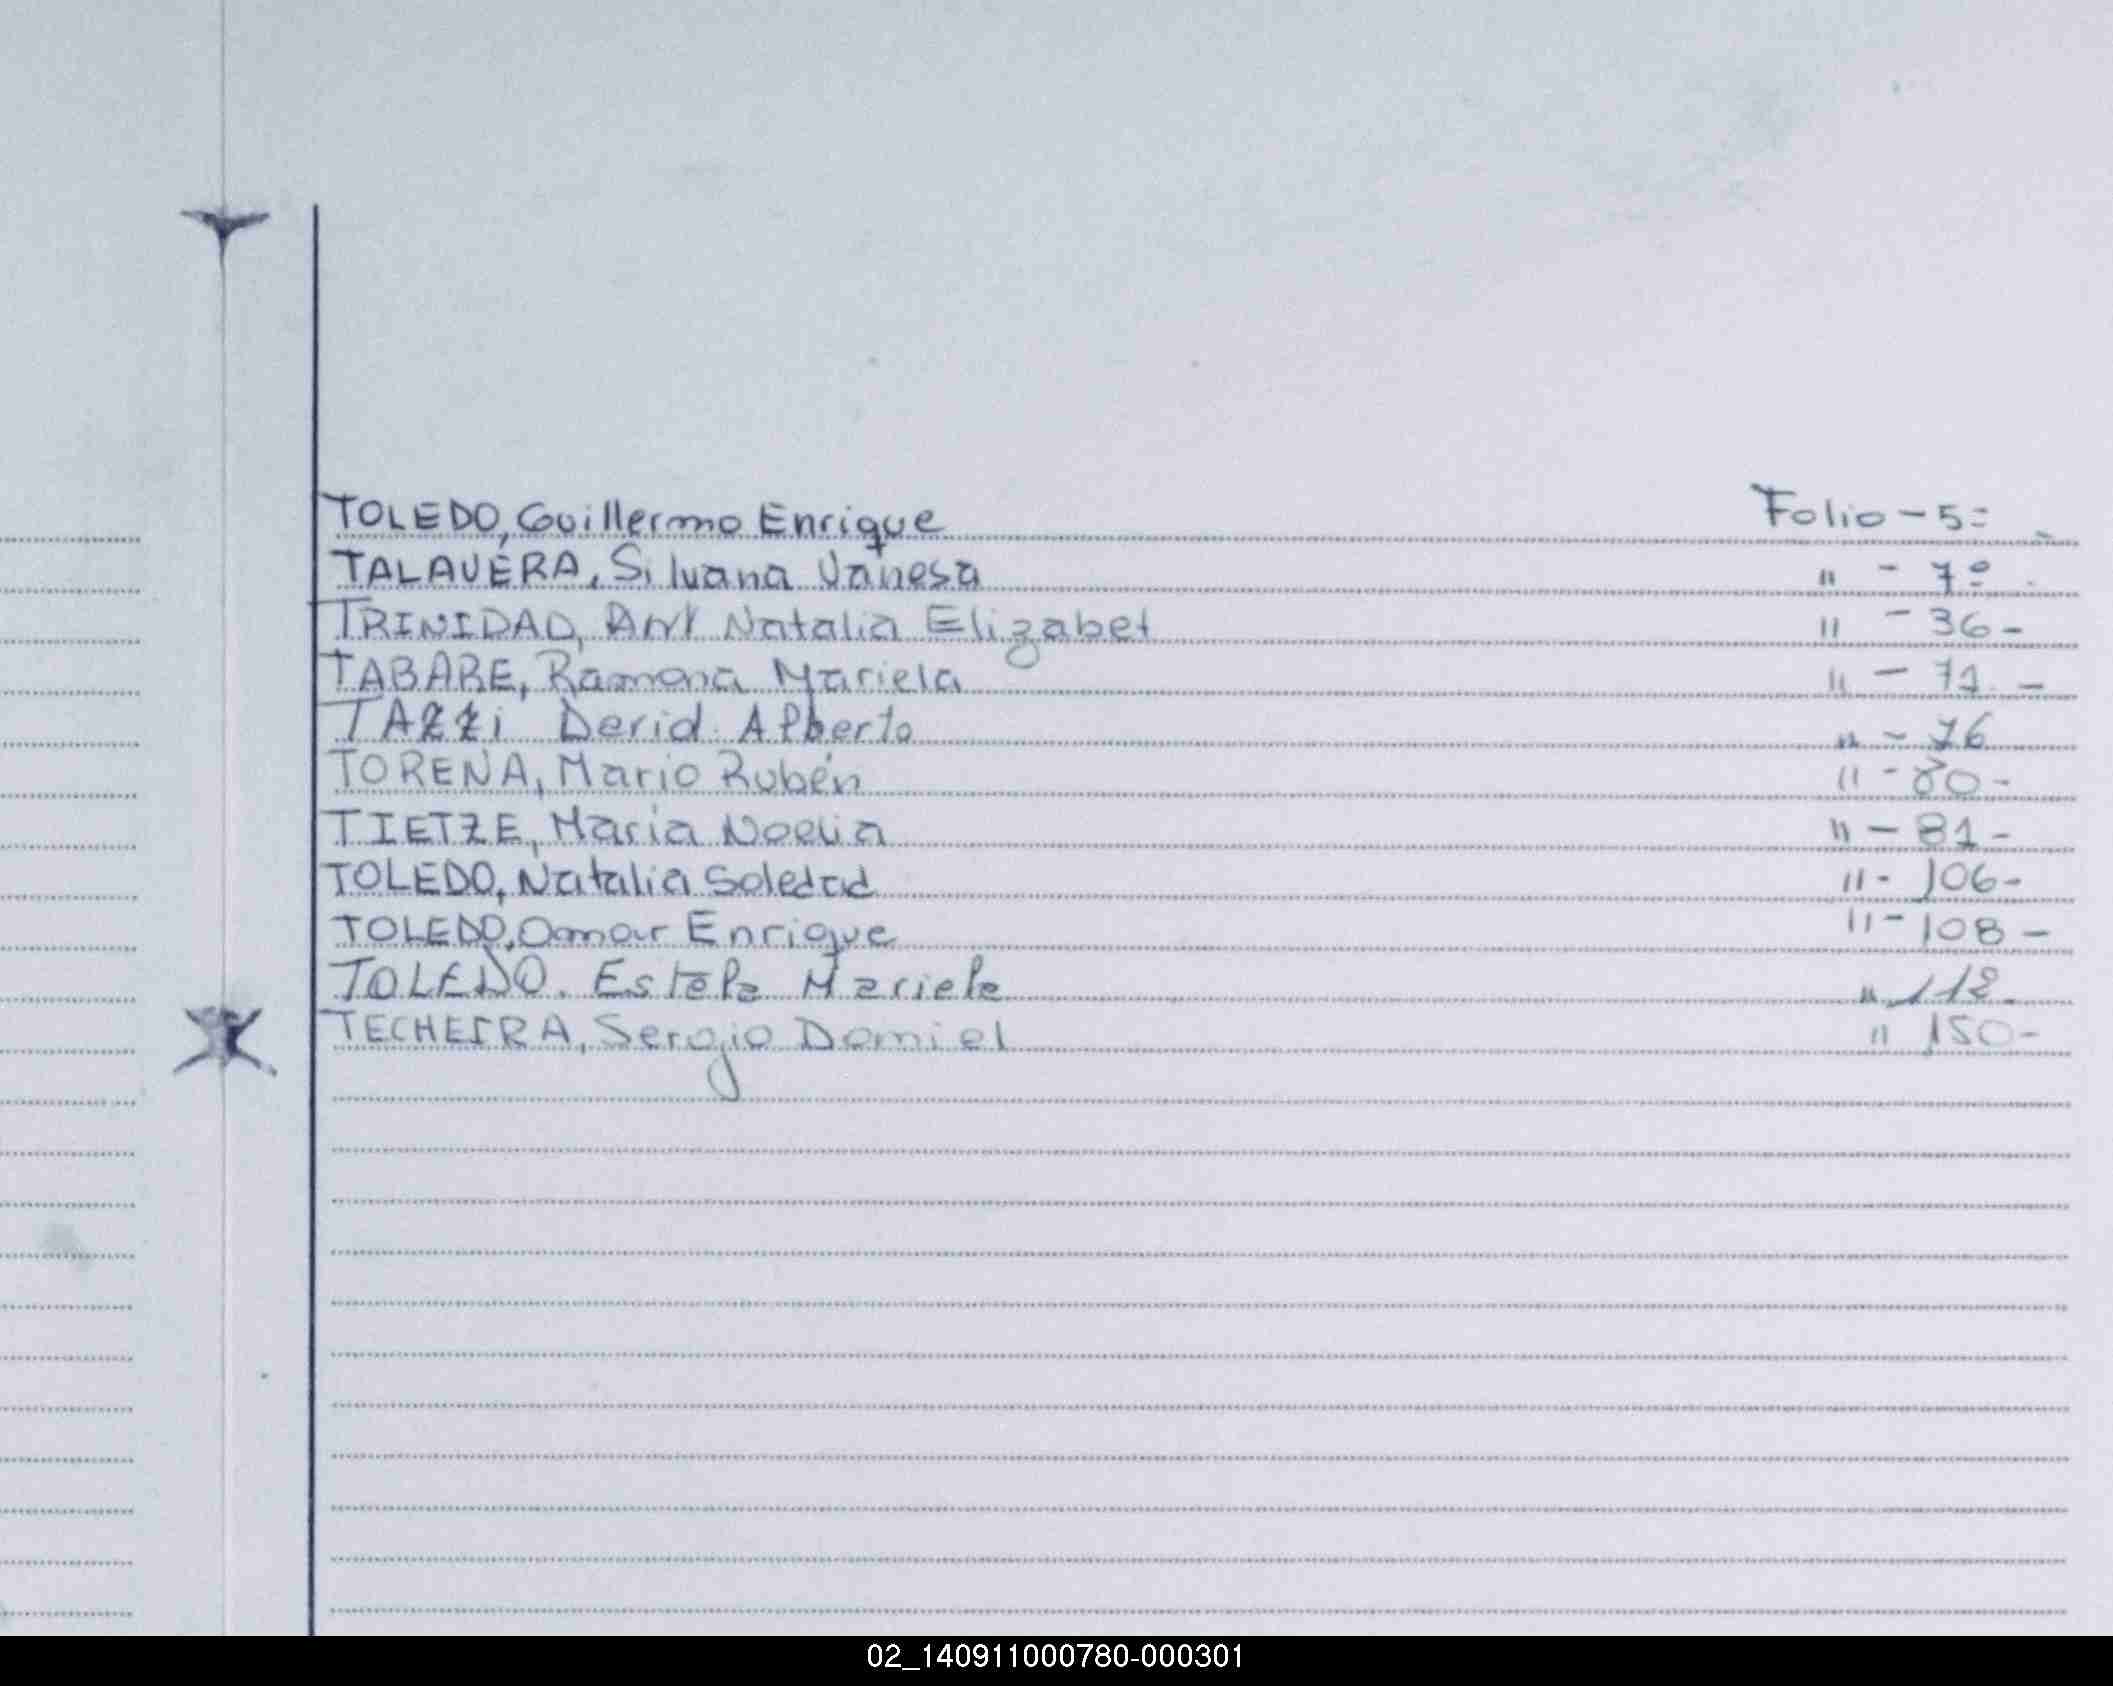 TOLEDO, Guillermo Enrique Folio - 5=
TALAVERA, Silvana Vanesa " - 7º
TRINIDAD, Natalia Elizabet " - 36 -
TABARE, Ramona Mariela " - 71 -
TAZZi David Alberto " - 76
TORENA, Mario Rubén " - 80 -
TIETZE, Maria Noelia " - 81 -
TOLEDO, Natalia Soledad " - 106 -
TOLEDO, Omar Enrique " - 108 -
TOLEDO. Estela Mariela " 112
TECHEIRA, Sergio Daniel " 150 -
02_140911000780-000301